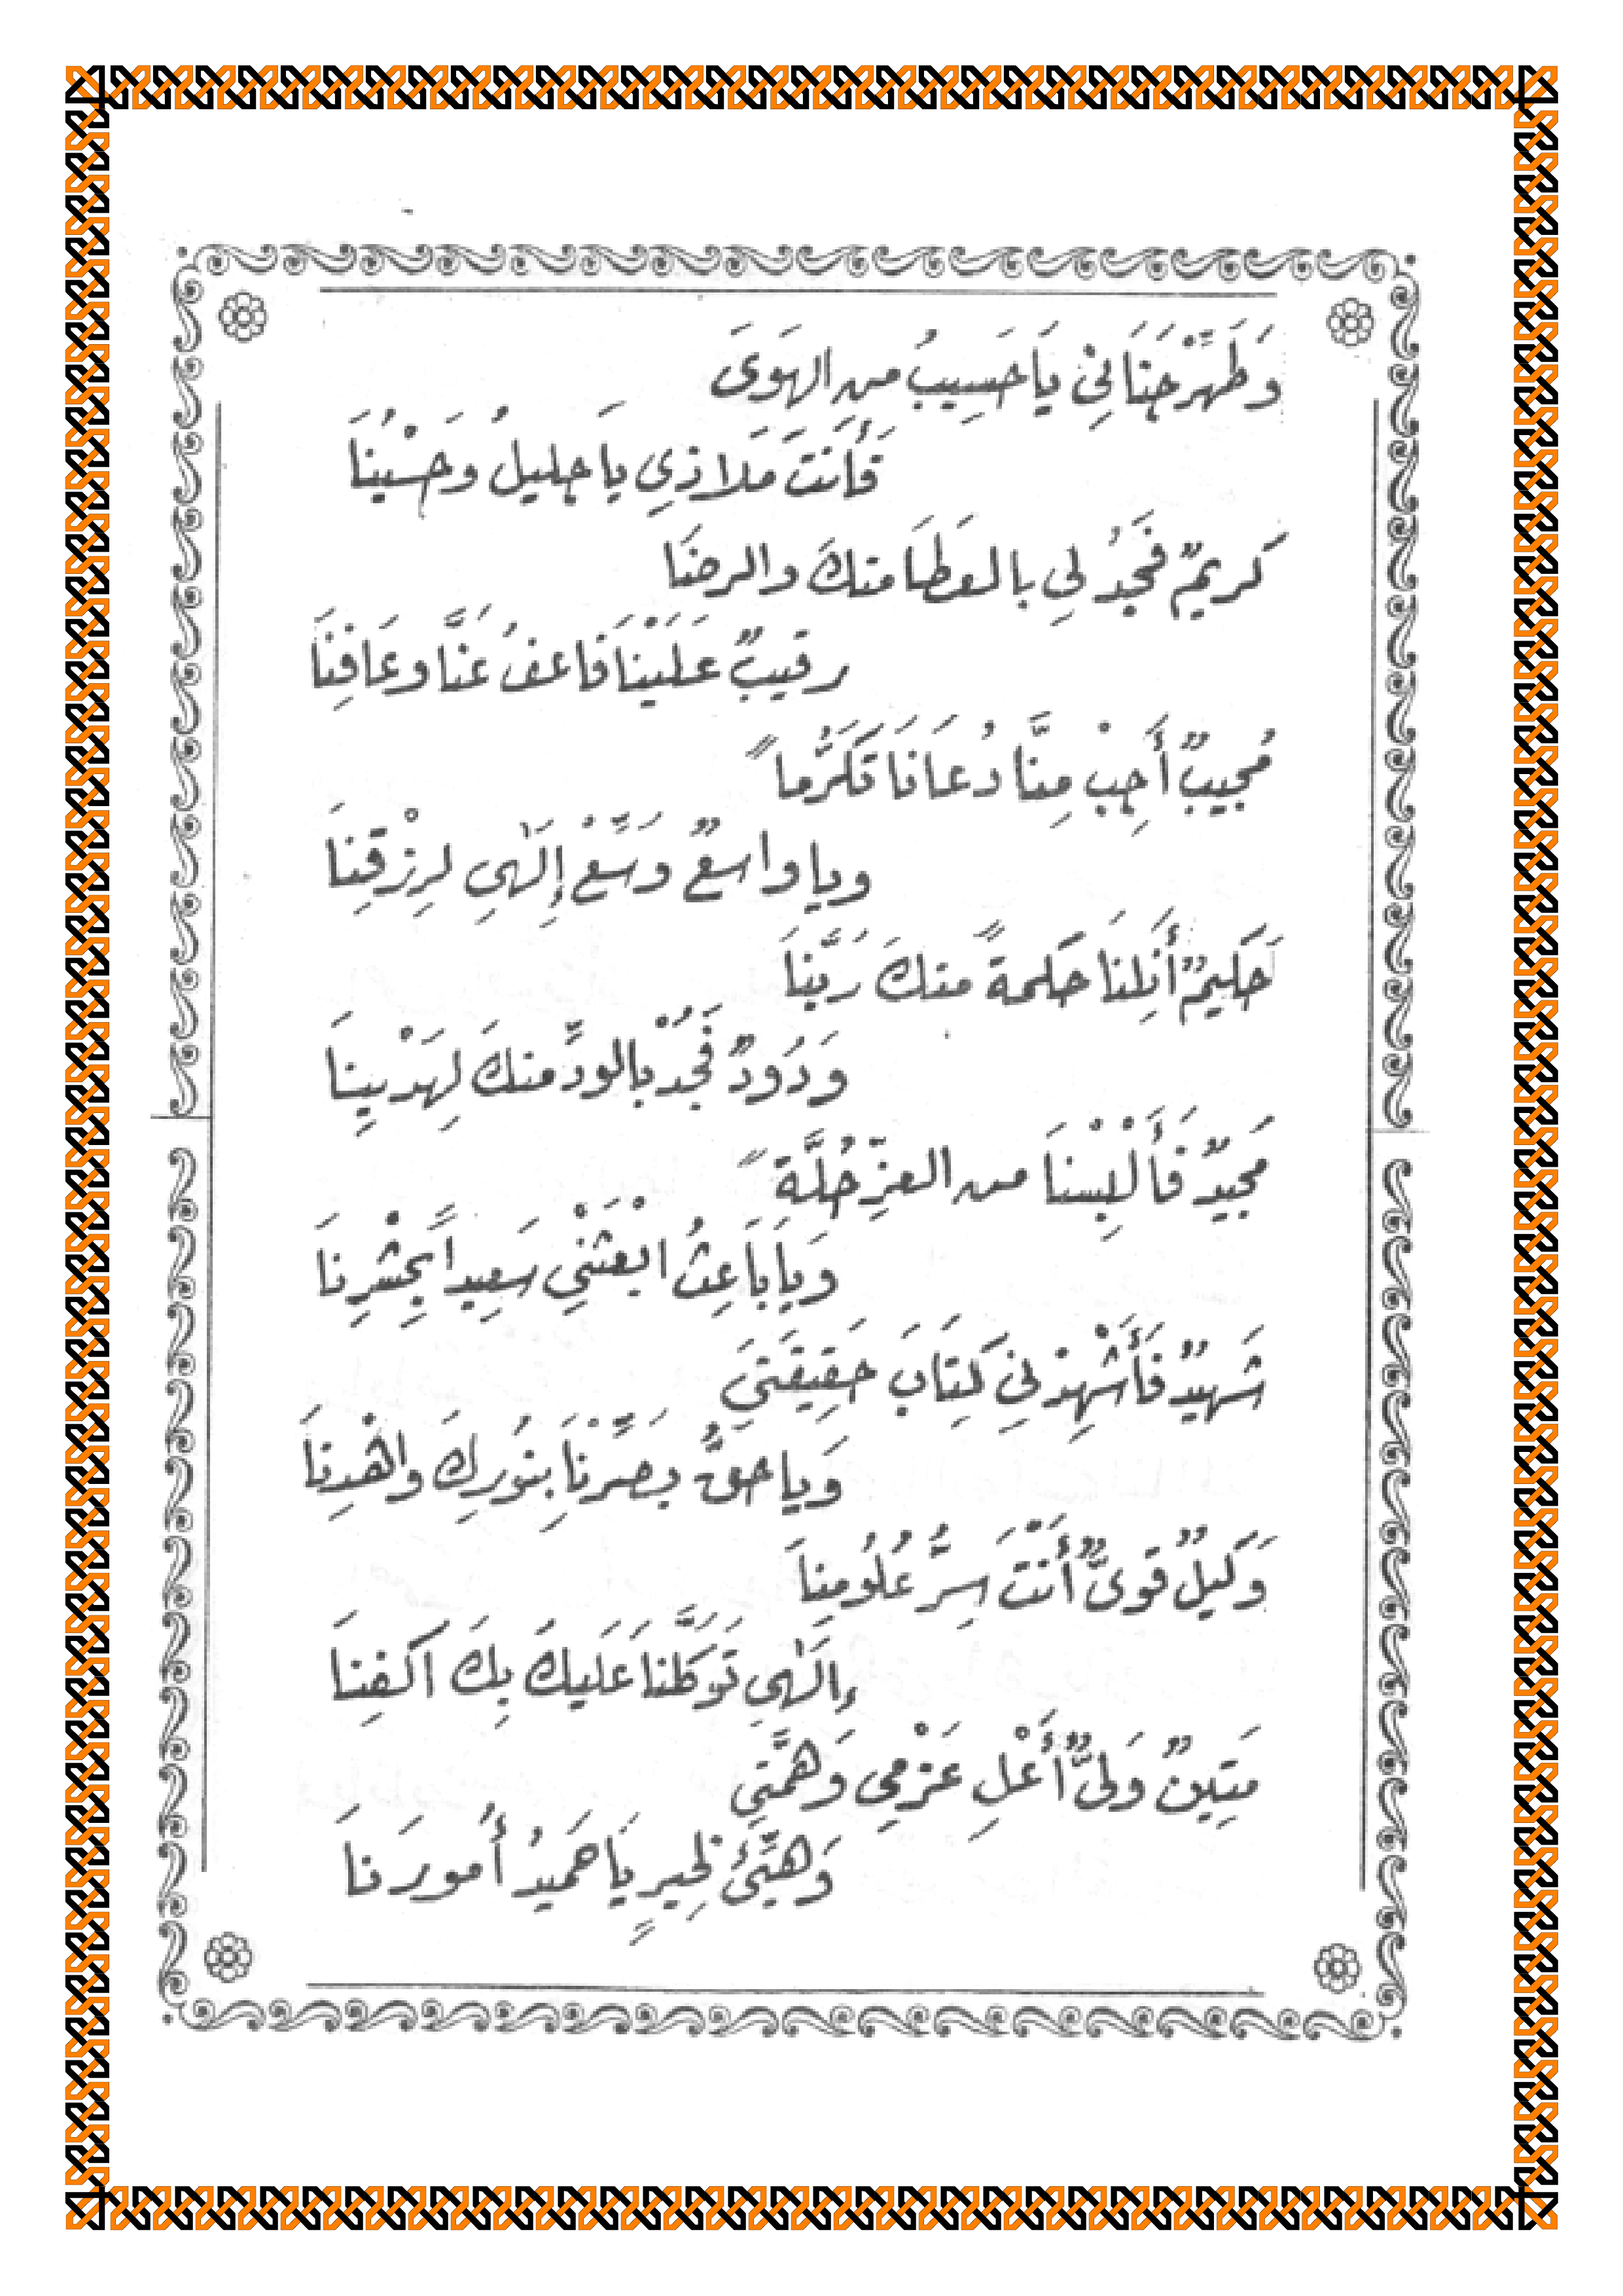 وَطَهِّرْ جَنَانِيْ يَا حَسِيبُ مِنَ الهَوَى
فَأَنتَ مَلَاذِي يَا جليلُ وَحَسْبُنَا
كَريمٌ فَجُدْ لِي بالعَطَا منكَ والرضَا
رقيبٌ عَلَيْنَا فَاعفُ عَنَّا وعَافِنَا
مُجيبٌ أَجِبْ مِنَّا دُعَانَا تَكَرُّماً
ويا واسعٌ وَسِّعْ إِلَهِي لرِزْقِنَا
حَكيمٌ أَنِلنَا حكمةً منكَ رَبَّنَا
وَدُودٌ فَجُدْ بالودِّ منكَ لِهَدْيِنَا
مَجيدٌ فَأَلْبِسْنَا من العزِّ حُلَّةً
وَيا بَاعِثُ ابْعَثْنِي سَعِيداً بِحَشْرِنَا
شَهيدٌ فَأَشْهِدْنِي كِتَابَ حَقِيقَتِي
وَيا حقُّ بَصِّرْنَا بِنُورِكَ واهْدِنَا
وَكيلٌ قَوىٌّ أَنْتَ سِرُّ عُلُومِنَا
إلَهِي تَوَكَّلنَا عَلَيكَ بِكَ اكفِنَا
مَتِينٌ وَلىٌّ أَعْلِ عَزْمِي وَهمَّتِي
وَهيِّئْ لِخيرٍ يَا حَميدُ أُمورَنَا